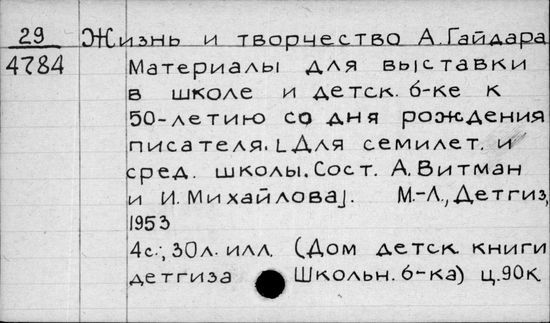 29 Жизнь и творчество А. Гайдара
4784 Материалы для выставки
в школе и детск. б-ке к
50-летию со дня рождения
писателя. [Для семилет. и
сред. школы. Сост. А. Витман
и И. Михайлова]. М.-Л., Детгиз,
1953
4с.; 30л. илл. (Дом детск. книги
детгиза Школьн. б-ка) ц. 90к